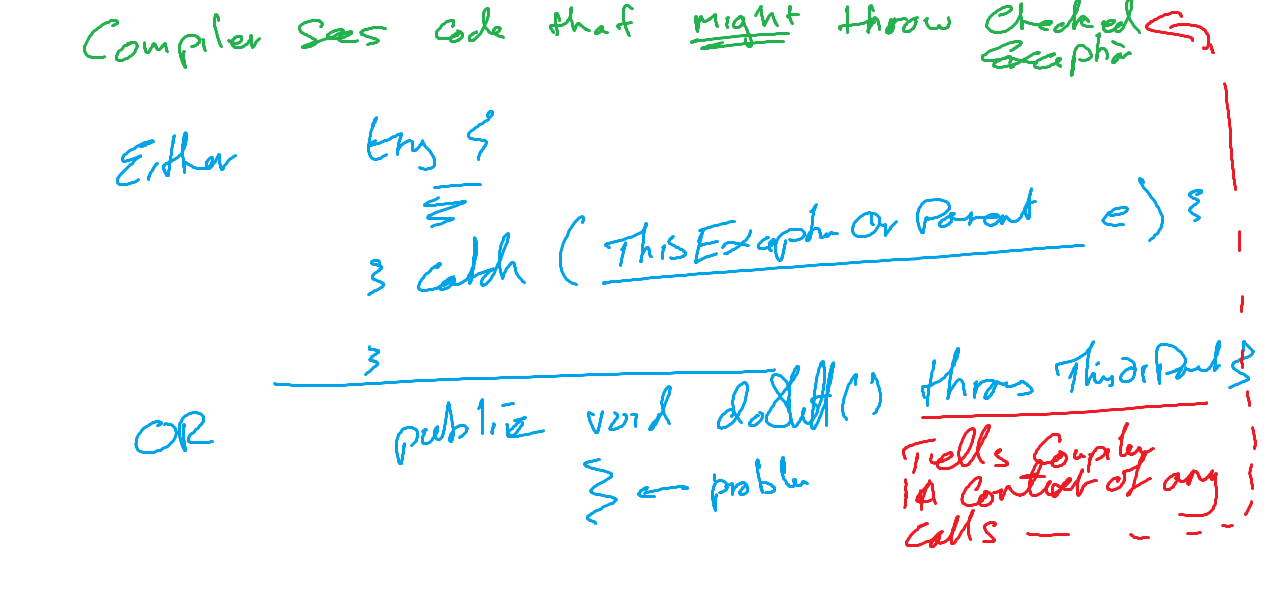 Compiler sees code that might throw Checked
Exception
Either try {
} catch (ThisException Or Parent e) {
}
OR public void doStuff() throws ThisOrParent {
} ← problem
Tells Compiler
in context of any
calls